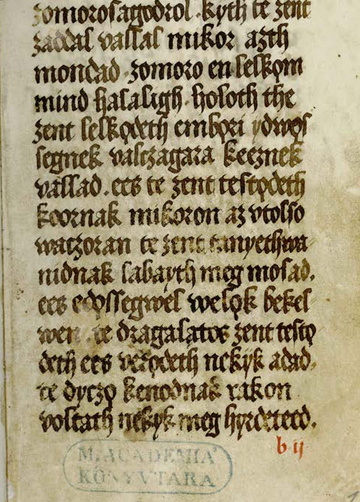 zomorosagodrol . kyth te zent
zaddal vallal mikor azth
mondad . zomoro en lelkom
mind halaligh . holoth the
zent lelkodeth embori ydwos
segnek valtzagara keeznek
vallad . ees te zent testodeth
koornak mikoron az vtolso
watzoran te zent tanyethwa
nidnak labayth meg mosad .
ees edossegwel welok bekel
wen . te dragalatos zent testo
deth ees verodeth nekyk adad .
te dyczo kenodnak rakon
voltath nekyk meg hyrdeted .
b ij
M. ACADEMIA
KÖNYVTARA